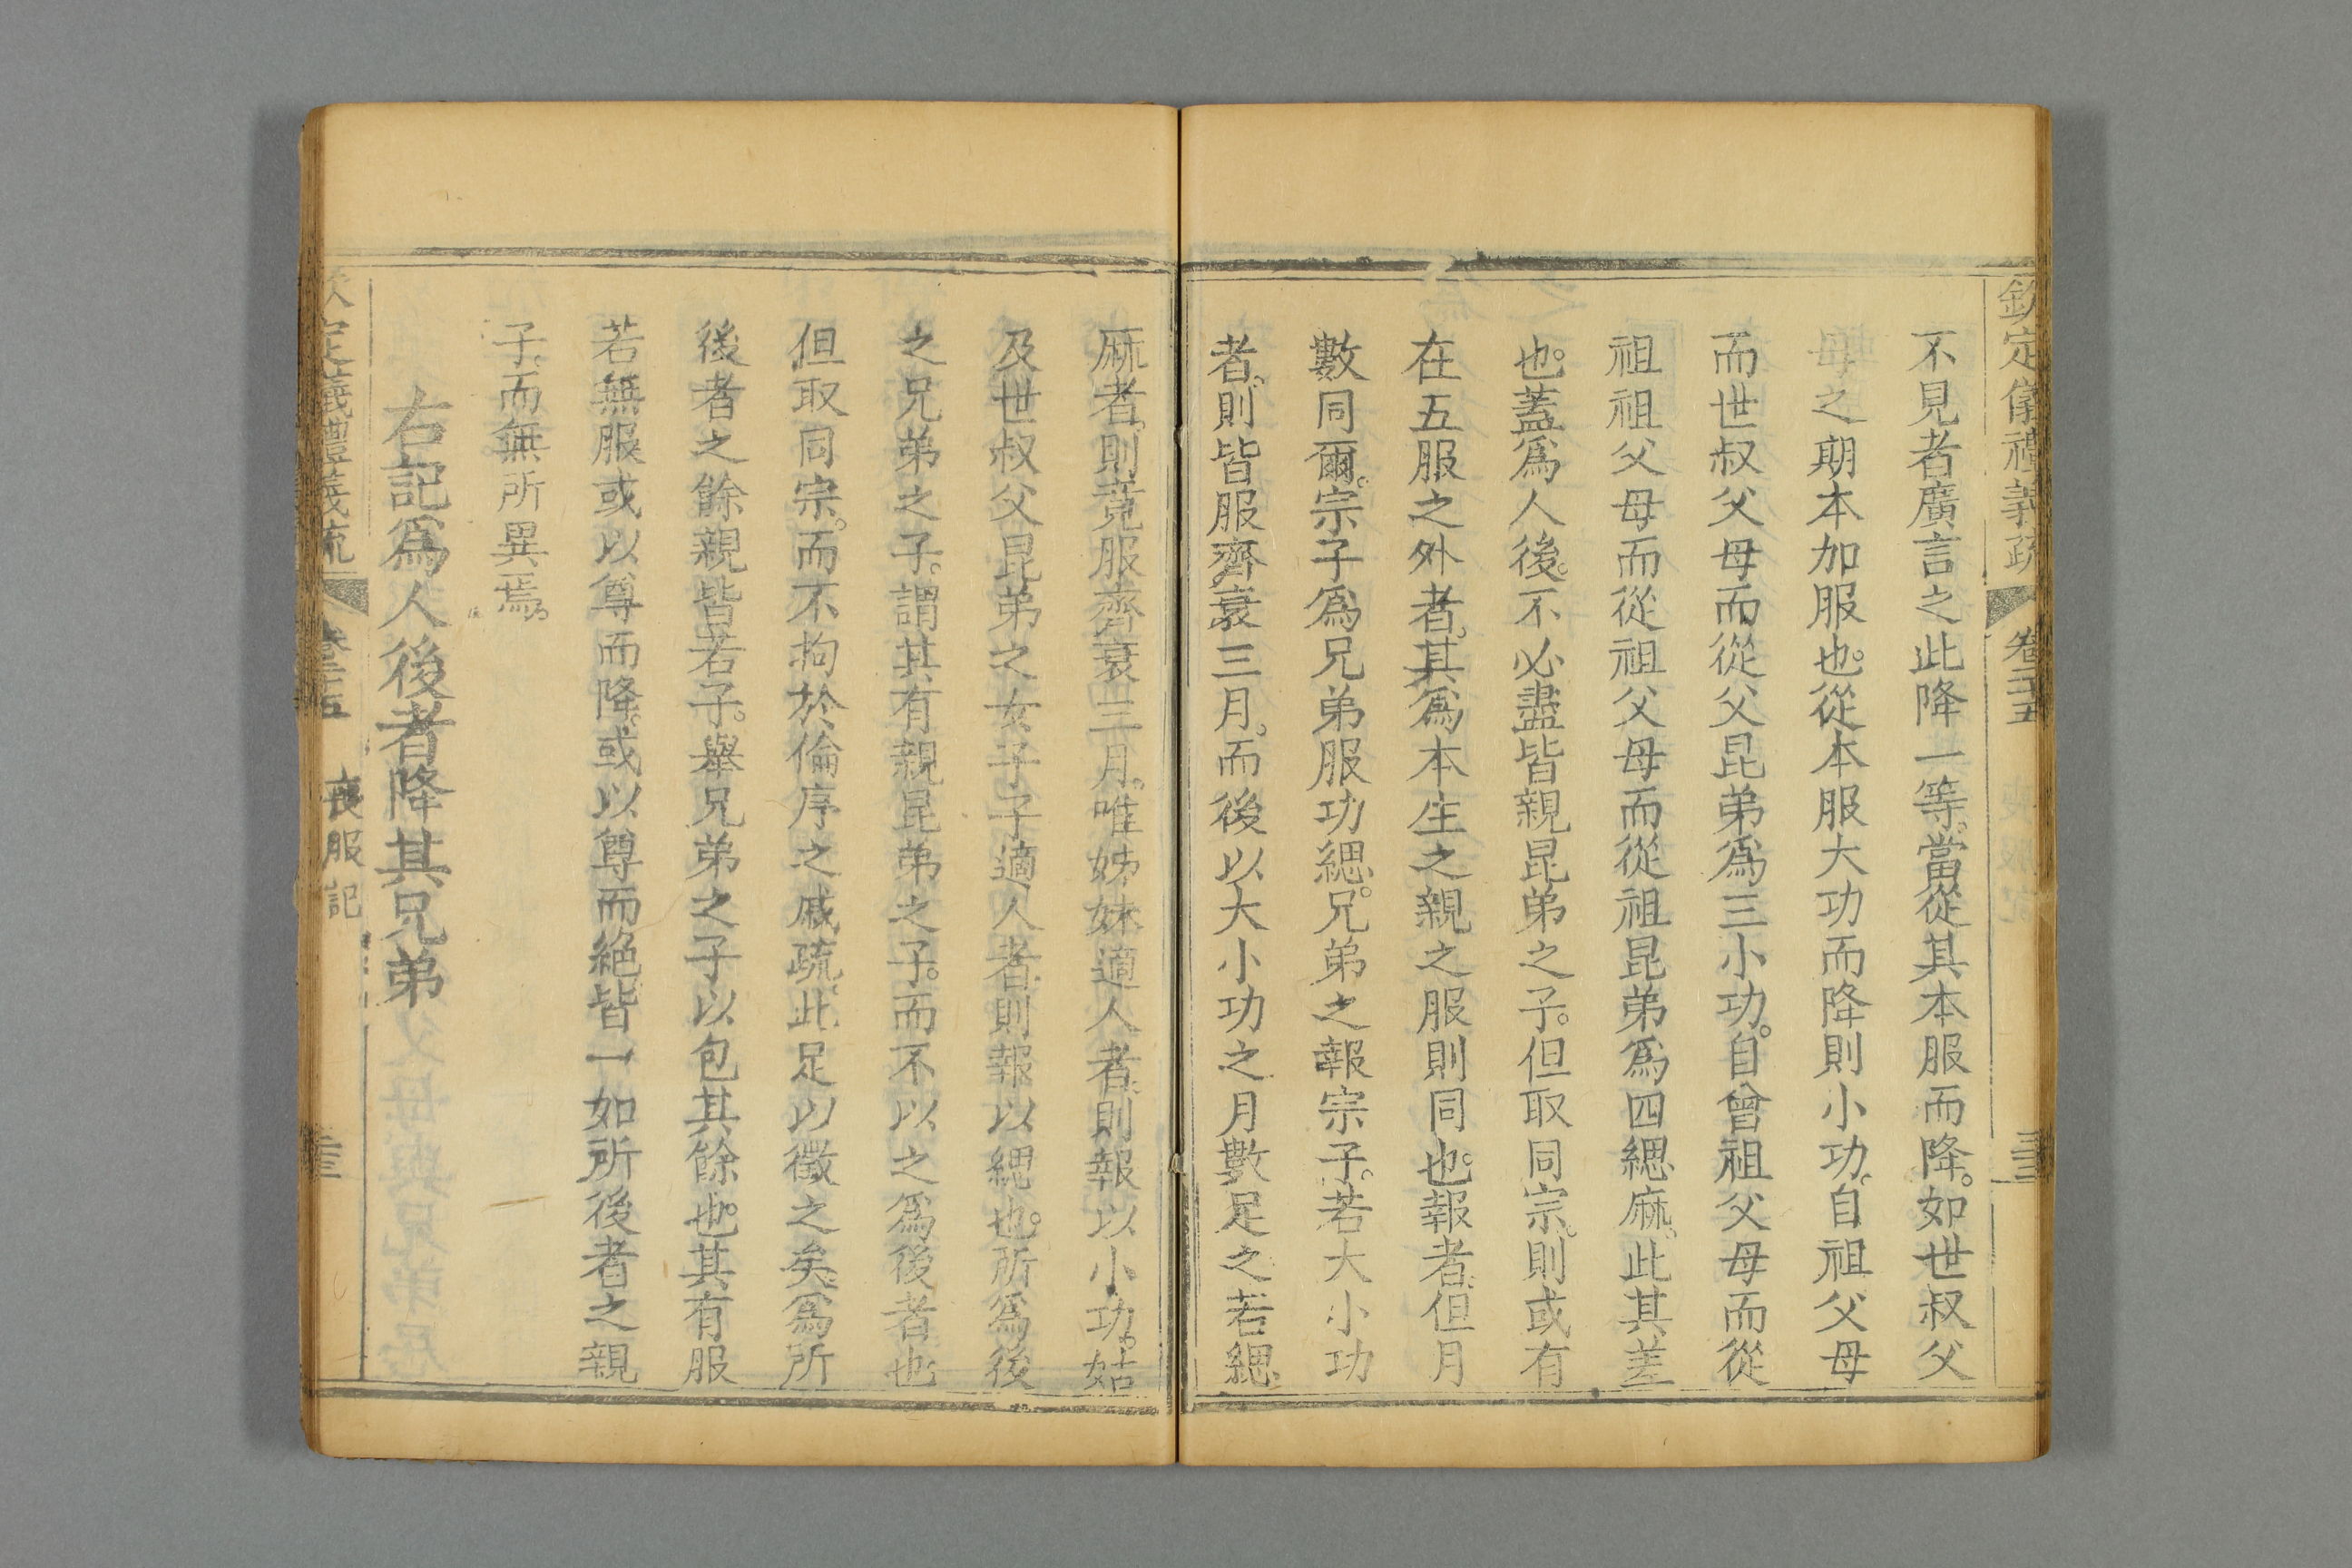 欽定儀禮義疏 卷二十五
不見者廣言之此降一等當從其本服而降如世叔父
母之期本加服也從本服大功而降則小功自祖父母
而世叔父母而從父昆弟爲三小功自曾祖父母而從
祖祖父母而從祖父母而從祖昆弟爲四緦麻此其差
也蓋爲人後不必盡皆親昆弟之子但取同宗則或有
在五服之外者其爲本生之親之服則同也報者但月
數同爾宗子爲兄弟服功緦兄弟之報宗子若大小功
者則皆服齊衰三月而後以大小功之月數足之若緦
麻者則竟服齊衰三月唯姊妹適人者則報以小功姑
及世叔父昆弟之女子子適人者則報以緦也所爲後
之兄弟之子謂其有親昆弟之子而不以之爲後者也
但取同宗而不拘於倫序之戚疏此足以徵之矣爲所
後者之餘親皆若子舉兄弟之子以包其餘也其有服
若無服或以尊而降或以尊而絕皆一如所後者之親
子而無所異焉
右記爲人後者降其兄弟
欽定儀禮義疏 卷二十五 喪服記